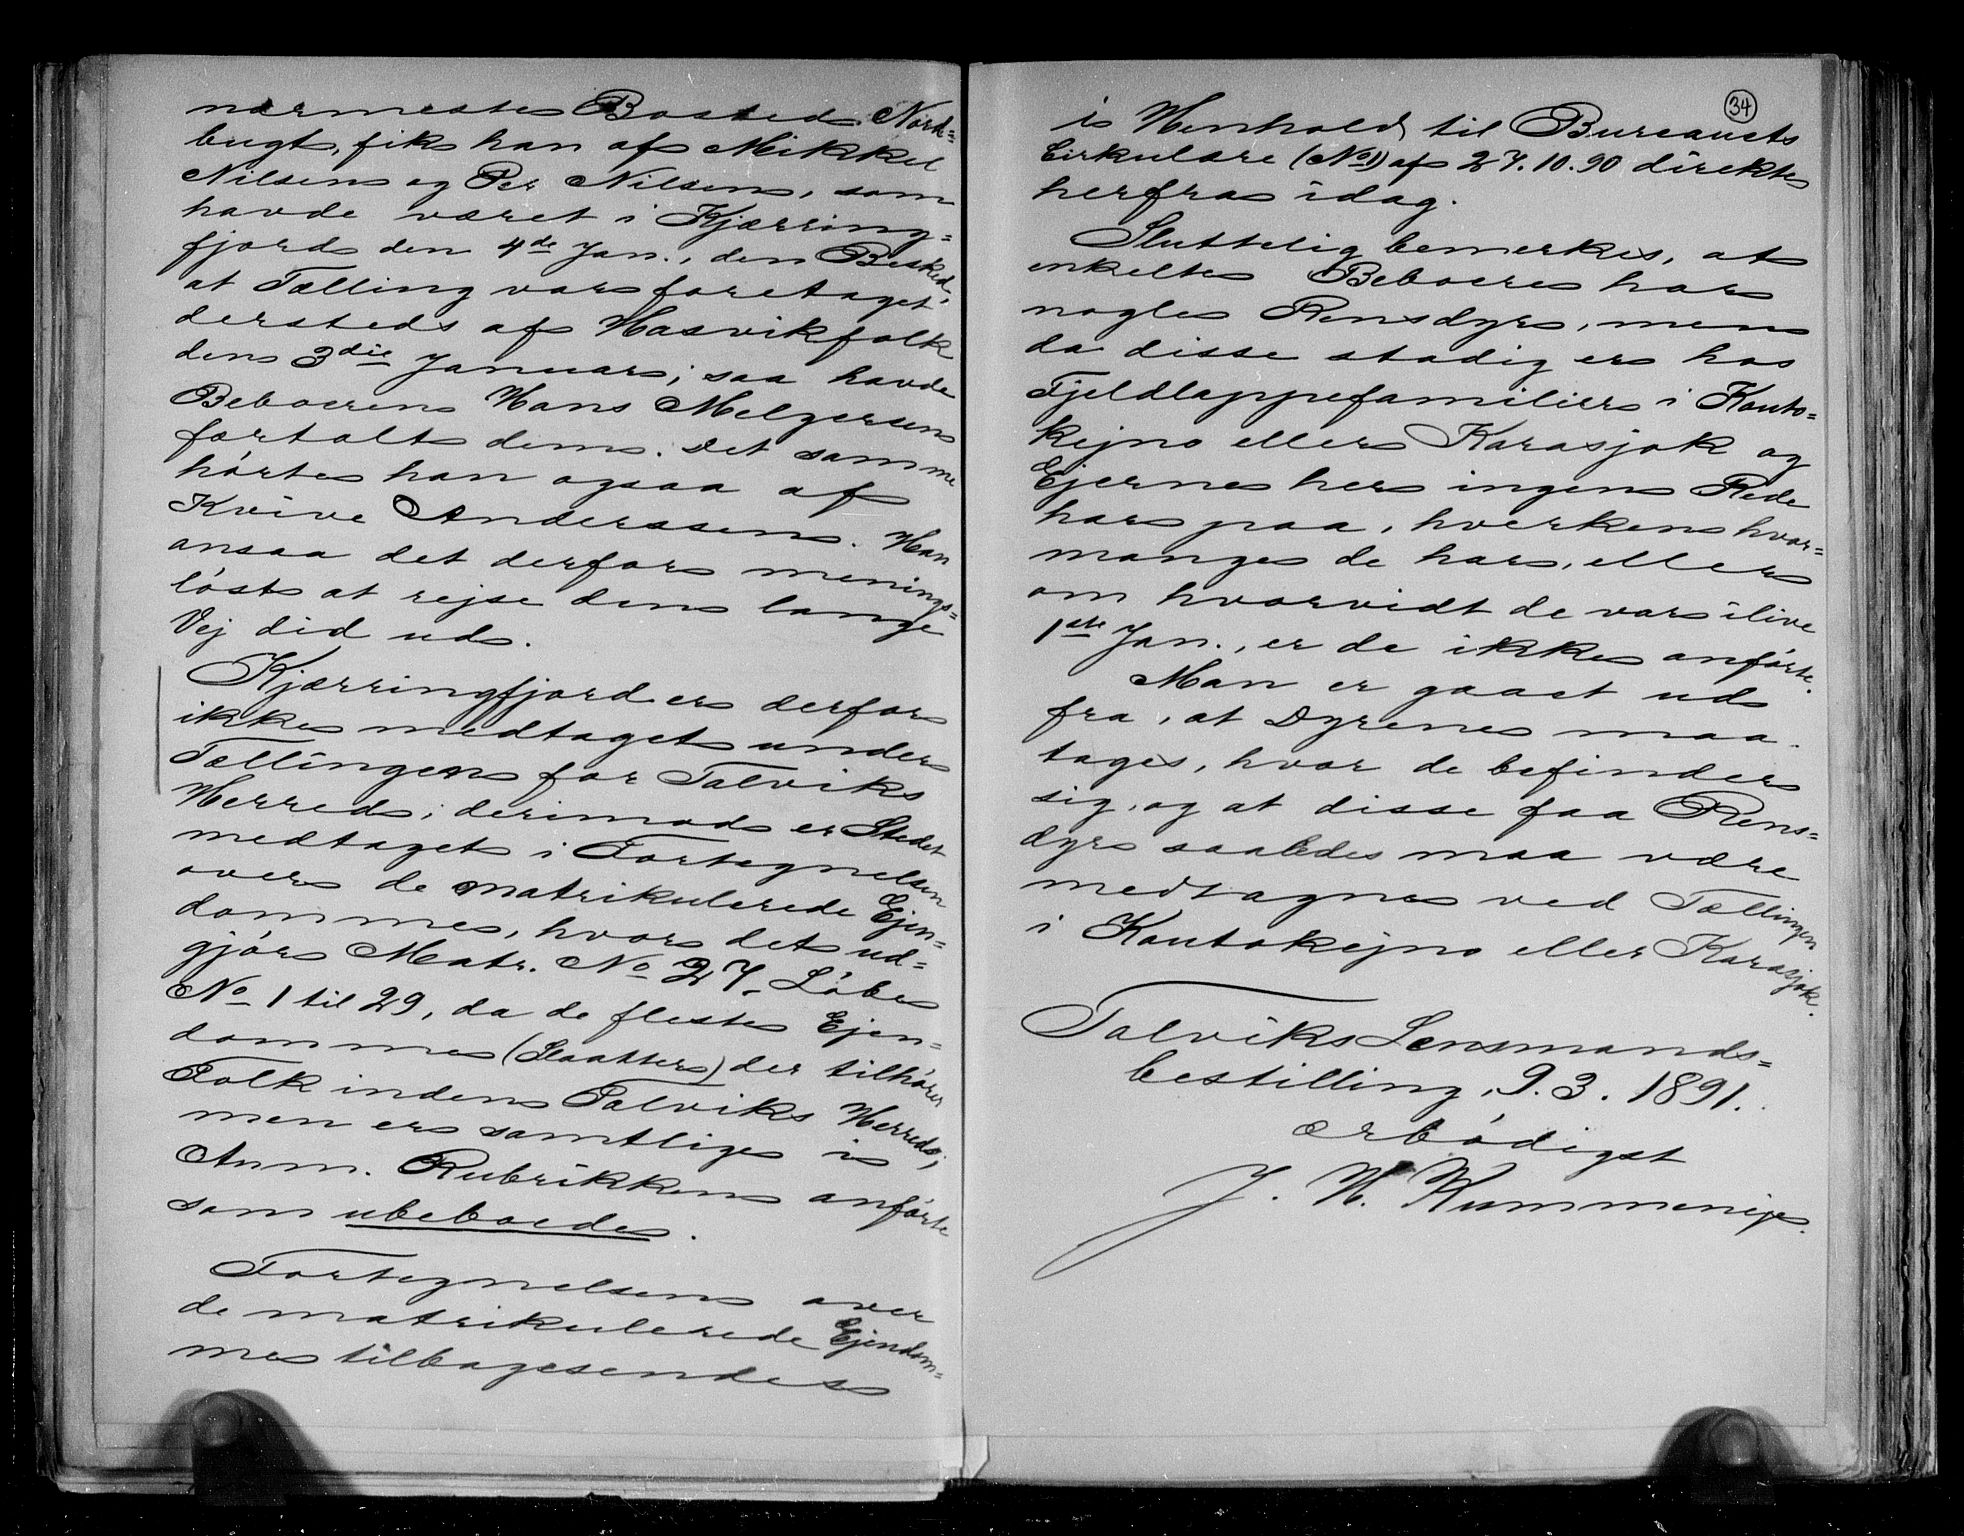 nærmeste Bosted Nord=
bugt, fik han af Mikkel
Nilsen og Per Nilsen, som
havde været i Kjærring=
fjord den 4de Jan., den Besked,
at Tælling var foretaget
dersteds af Hasvikfolk
den 3die Januar; saa havde
Beboeren Hans Melgersen
fortalt dem. Det samme
hørte han ogsaa af
Kvive Anderssen. Han
ansaa det derfor menings=
løst at rejse den lange
Vej did ud.
Kjærringfjord er derfor
ikke medtaget under
Tællingen for Talviks
Herred; derimod er Stedet
medtaget i Fortegnelsen
over de matrikulerede Ejen=
domme, hvor det ud=
gjør Matr. No 27, Løbe
No 1 til 29, da de fleste Ejen=
domme (Slaatter) der tilhører
Folk inden Talviks Herred;
men er samtlige i
Anm. Rubrikken anførte
som ubeboede.
Fortegnelsen over
de matrikulerede Ejendom=
me tilbagesendes
34
i Henhold til Bureauets
Cirkulære (No 1) af 27.10.90 direkte
herfra idag.
Sluttelig bemerkes, at
enkelte Beboere har
nogle Rensdyr, men
da disse stadig er hos
Fjeldlappefamilier i Kauto=
kejno eller Karasjok og
Ejerne her ingen Rede
har paa, hverken hvor=
mange de har, eller
om hvorvidt de var ilive
1ste Jan., er de ikke anførte.
Man er gaaet ud
fra, at Dyrene maa
tages, hvor de befinder
sig, og at disse faa Rens=
dyr saaledes maa være
medtagne ved Tællingen
i Kautokejno eller Karasjok.
Talviks Lensmands=
bestilling, 9.3.1891.
ærbødigst
J. H. Kummeneje.